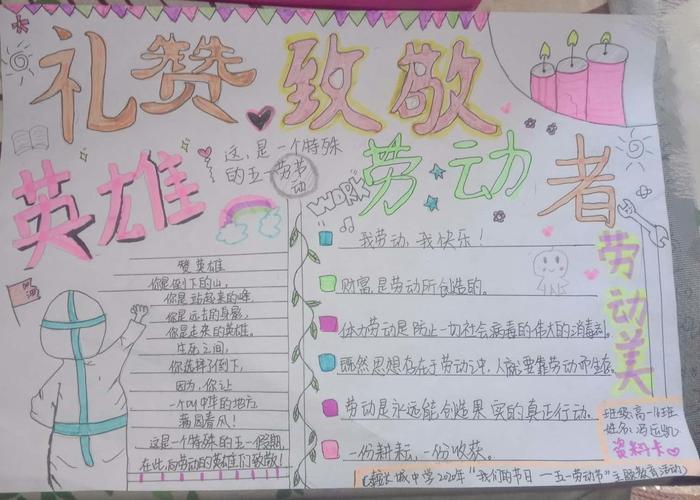 礼赞
致敬
英雄
这,是一个特殊
的五一劳动节
WORK
劳动者
赞英雄
你是倒下的山,
你是站起来的峰,
你是远去的身影,
你是走来的英雄。
生死之间,
你选择了倒下,
因为,你让
一个叫中华的地方
满园春风!
这是一个特殊的五一假期
在此,向劳动的英雄们致敬!
我劳动,我快乐!
财富是劳动所创造的。
体力劳动是防止一切社会病毒的伟大的消毒剂。
既然思想存在于劳动之中,人就要靠劳动而生存。
劳动是永远能创造果实的真正行动。
一份耕耘,一份收获。
劳动美
班级:高一
姓名:冯远凯
资料卡
长城中学
“我们的节日——五一劳动节”主题教育活动